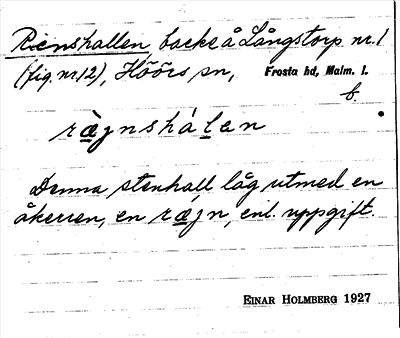 Rienshallen, backe å Långstorp nr. 1
(fig. nr. 12), Höörs sn, Frosta hd, Malm. l.
b.
ræ̀jnshálen
Denna stenhall låg utmed en
åkerren, en ræ̀jn, enl. uppgift.
EINAR HOLMBERG 1927